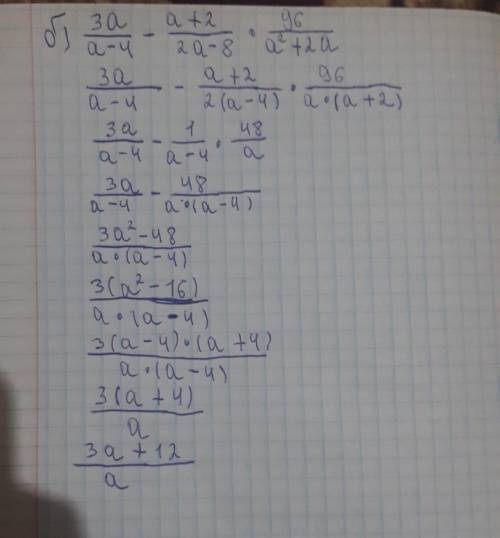 б) 3a/(a-4) - (a+2)/(2a-8) · 96/(a²+2a)
3a/(a-4) - (a+2)/(2(a-4)) · 96/(a·(a+2))
3a/(a-4) - 1/(a-4) · 48/a
3a/(a-4) - 48/(a·(a-4))
(3a²-48)/(a·(a-4))
3(a²-16)/(a·(a-4))
3(a-4)·(a+4)/(a·(a-4))
3(a+4)/a
(3a+12)/a